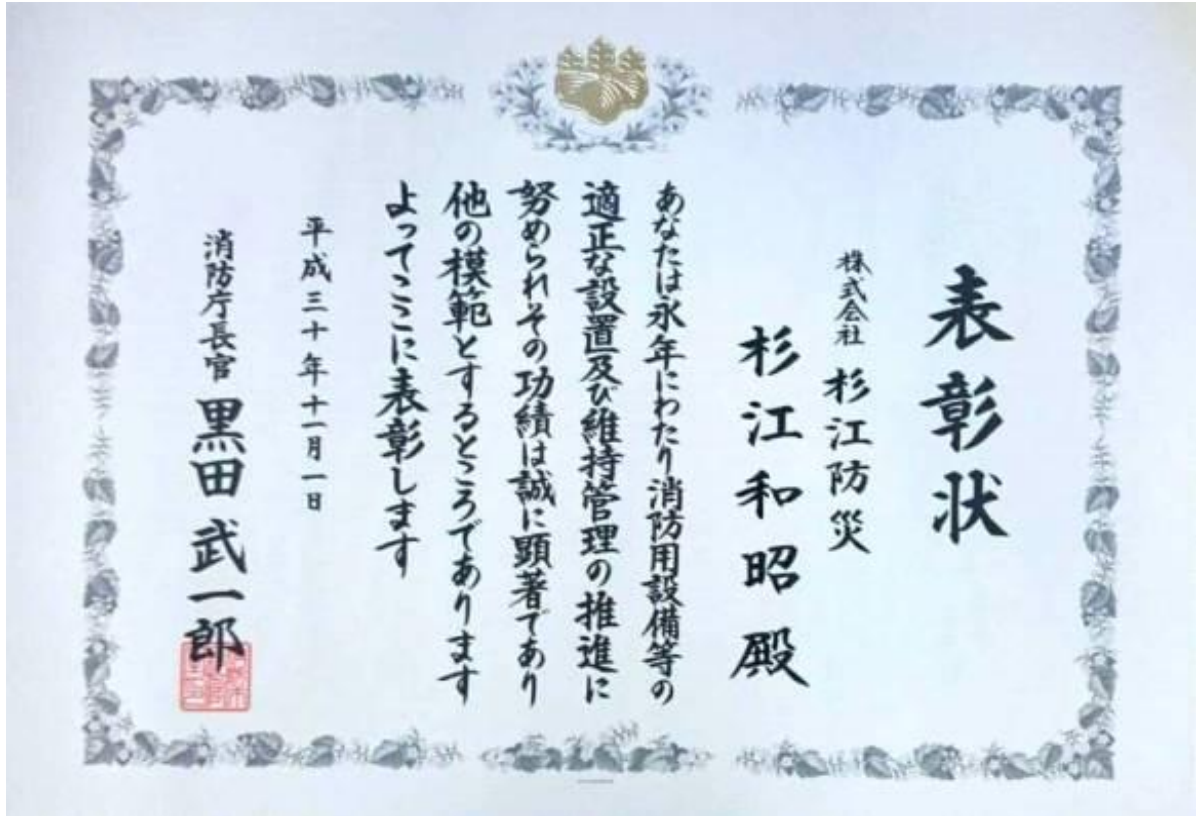 表彰状
株式会社 杉江防災
杉江和昭殿
あなたは永年にわたり消防用設備等の
適正な設置及び維持管理の推進に
努められその功績は誠に顕著であり
他の模範とするところであります
よってここに表彰します
平成三十年十一月一日
消防庁長官 黒田武一郎